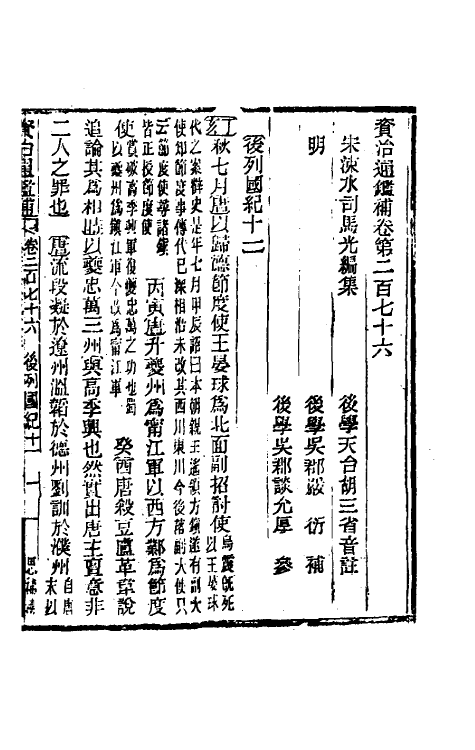 資治通鑑補卷第二百七十六
宋涑水司馬光編集
後學天台胡三省音註
明
後學吳郡嚴衍補
後學吳郡談允厚參
後列國紀十二
秋七月唐以歸德節度使王晏球為北面副招討使烏震旣死以王晏球
代之案薛史是年七月甲辰詔曰本朝親王遙領方鎮遂有副大
使知節度事傳代已深相沿未改其西川東川今後落副大使只
云節度使等諸鎮
皆正授節度使
丙寅唐升夔州為甯江軍以西方鄴為節度
使賞破高季興軍復夔忠萬之功也蜀
以夔州為鎮江軍今改為甯江軍
癸酉唐殺豆盧革韋說
追論其為相時以夔忠萬三州與高季興也然實出唐主夏意非
二人之罪也
唐流段凝於遼州溫韜於德州劉訓於濮州自唐末以
資治通鑑補
卷二百七十六
後列國紀十
一
思補樓